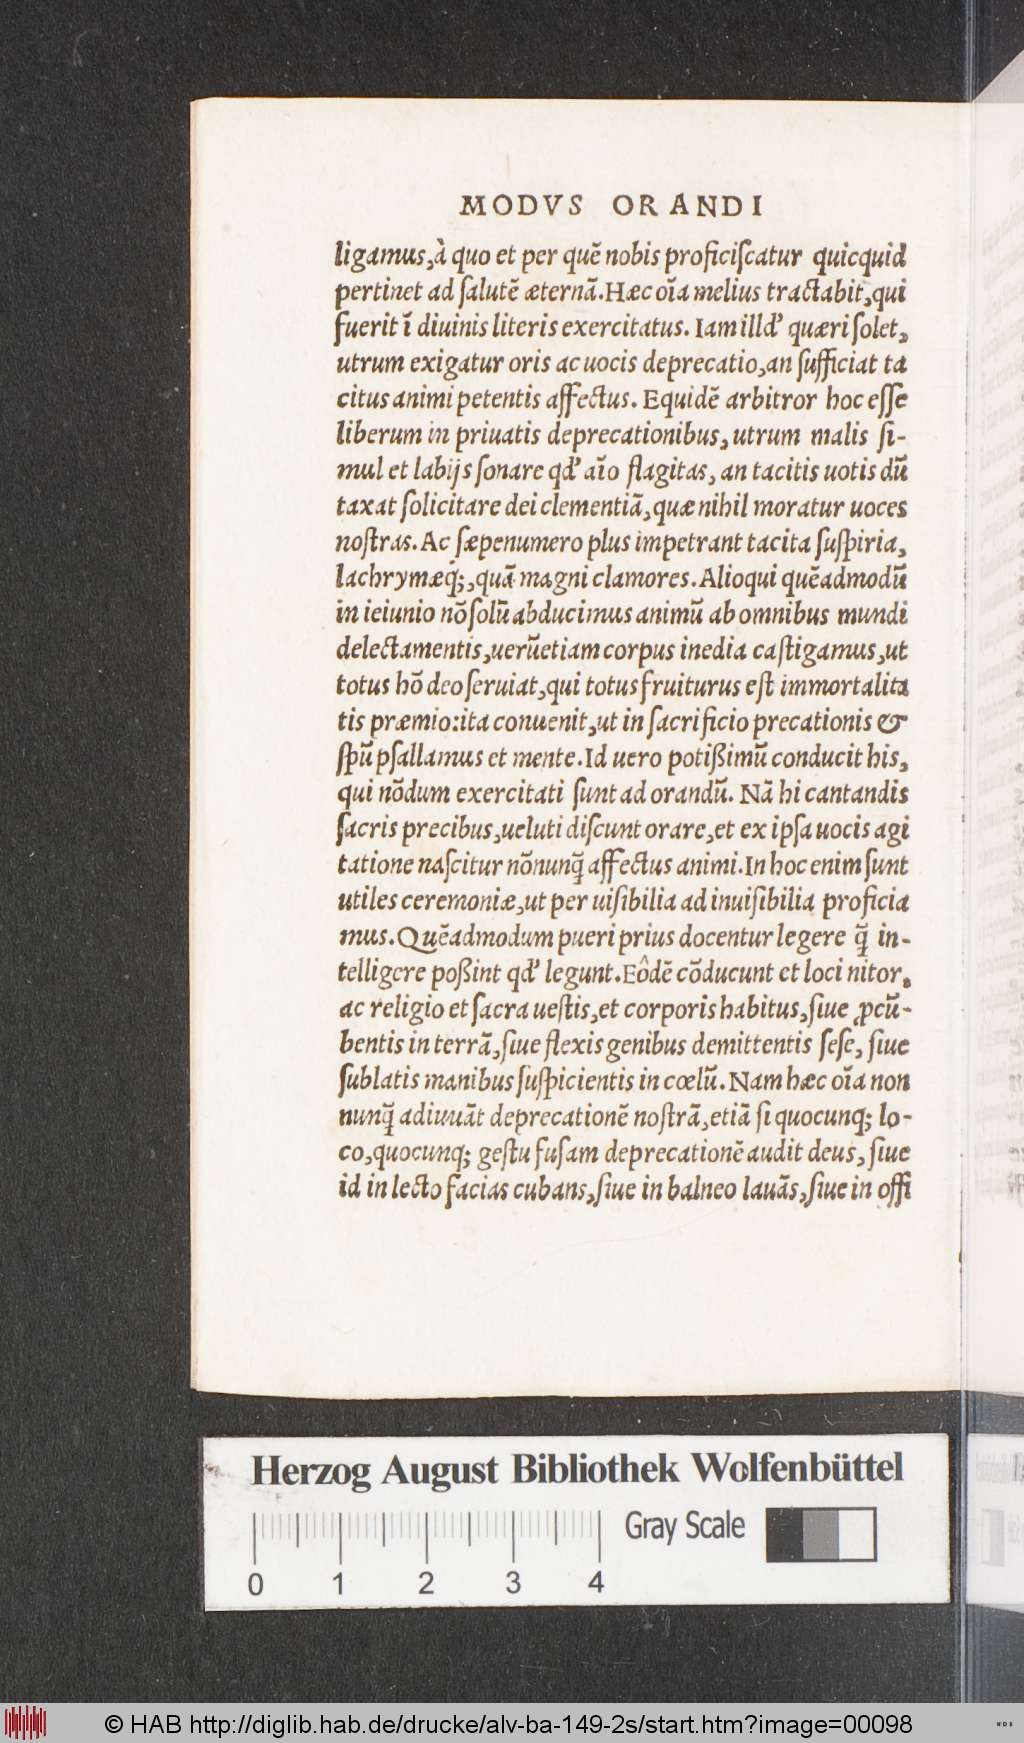 MODVS ORANDI
ligamus, à quo et per quẽ nobis proficiſcatur quicquid
pertinet ad ſalutẽ æternã. Hæc oĩa melius tractabit, qui
fuerit ĩ diuinis literis exercitatus. Iam illd' quæri ſolet,
utrum exigatur oris ac uocis deprecatio, an ſufficiat ta
citus animi petentis affectus. Equidẽ arbitror hoc eſſe
liberum in priuatis deprecationibus, utrum malis ſi-
mul et labijs ſonare qd' aĩo flagitas, an tacitis uotis dũ
taxat ſolicitare dei clementiã, quæ nihil moratur uoces
noſtras. Ac ſæpenumero plus impetrant tacita ſuſpiria,
lachrymæq́;, quã magni clamores. Alioqui quẽadmodũ
in ieiunio nõ ſolũ abducimus animũ ab omnibus mundi
delectamentis, uerũetiam corpus inedia caſtigamus, ut
totus hõ deo ſeruiat, qui totus fruiturus eſt immortalita
tis præmio: ita conuenit, ut in ſacrificio precationis &
ſpũ pſallamus et mente. Id uero potißimũ conducit his,
qui nõdum exercitati ſunt ad orandũ. Nã hi cantandis
ſacris precibus, ueluti diſcunt orare, et ex ipſa uocis agi
tatione naſcitur nõnunq̃ affectus animi. In hoc enim ſunt
utiles ceremoniæ, ut per uiſibilia ad inuiſibilia proficia
mus. Quẽadmodum pueri prius docentur legere q̃ in-
telligere poßint qd' legunt. Eôdẽ cõducunt et loci nitor,
ac religio et ſacra ueſtis, et corporis habitus, ſiue ꝓcũ-
bentis in terrã, ſiue flexis genibus demittentis ſeſe, ſiue
ſublatis manibus ſuſpicientis in cœlũ. Nam hæc oĩa non
nunq̃ adiuuãt deprecationẽ noſtrã, etiã ſi quocunq; lo-
co, quocunq; geſtu fuſam deprecationẽ audit deus, ſiue
id in lecto facias cubans, ſiue in balneo lauãs, ſiue in offi
Herzog August Bibliothek Wolfenbüttel
Gray Scale
0 1 2 3 4
© HAB http://diglib.hab.de/drucke/alv-ba-149-2s/start.htm?image=00098